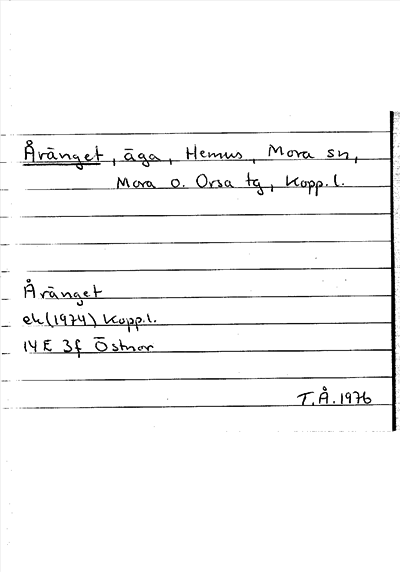 Åränget, äga, Hemus, Mora sn,
Mora o. Orsa tg, Kopp.l.
Åränget
ek (1974) Kopp.l.
14E 3f Östnor
T.Å. 1976